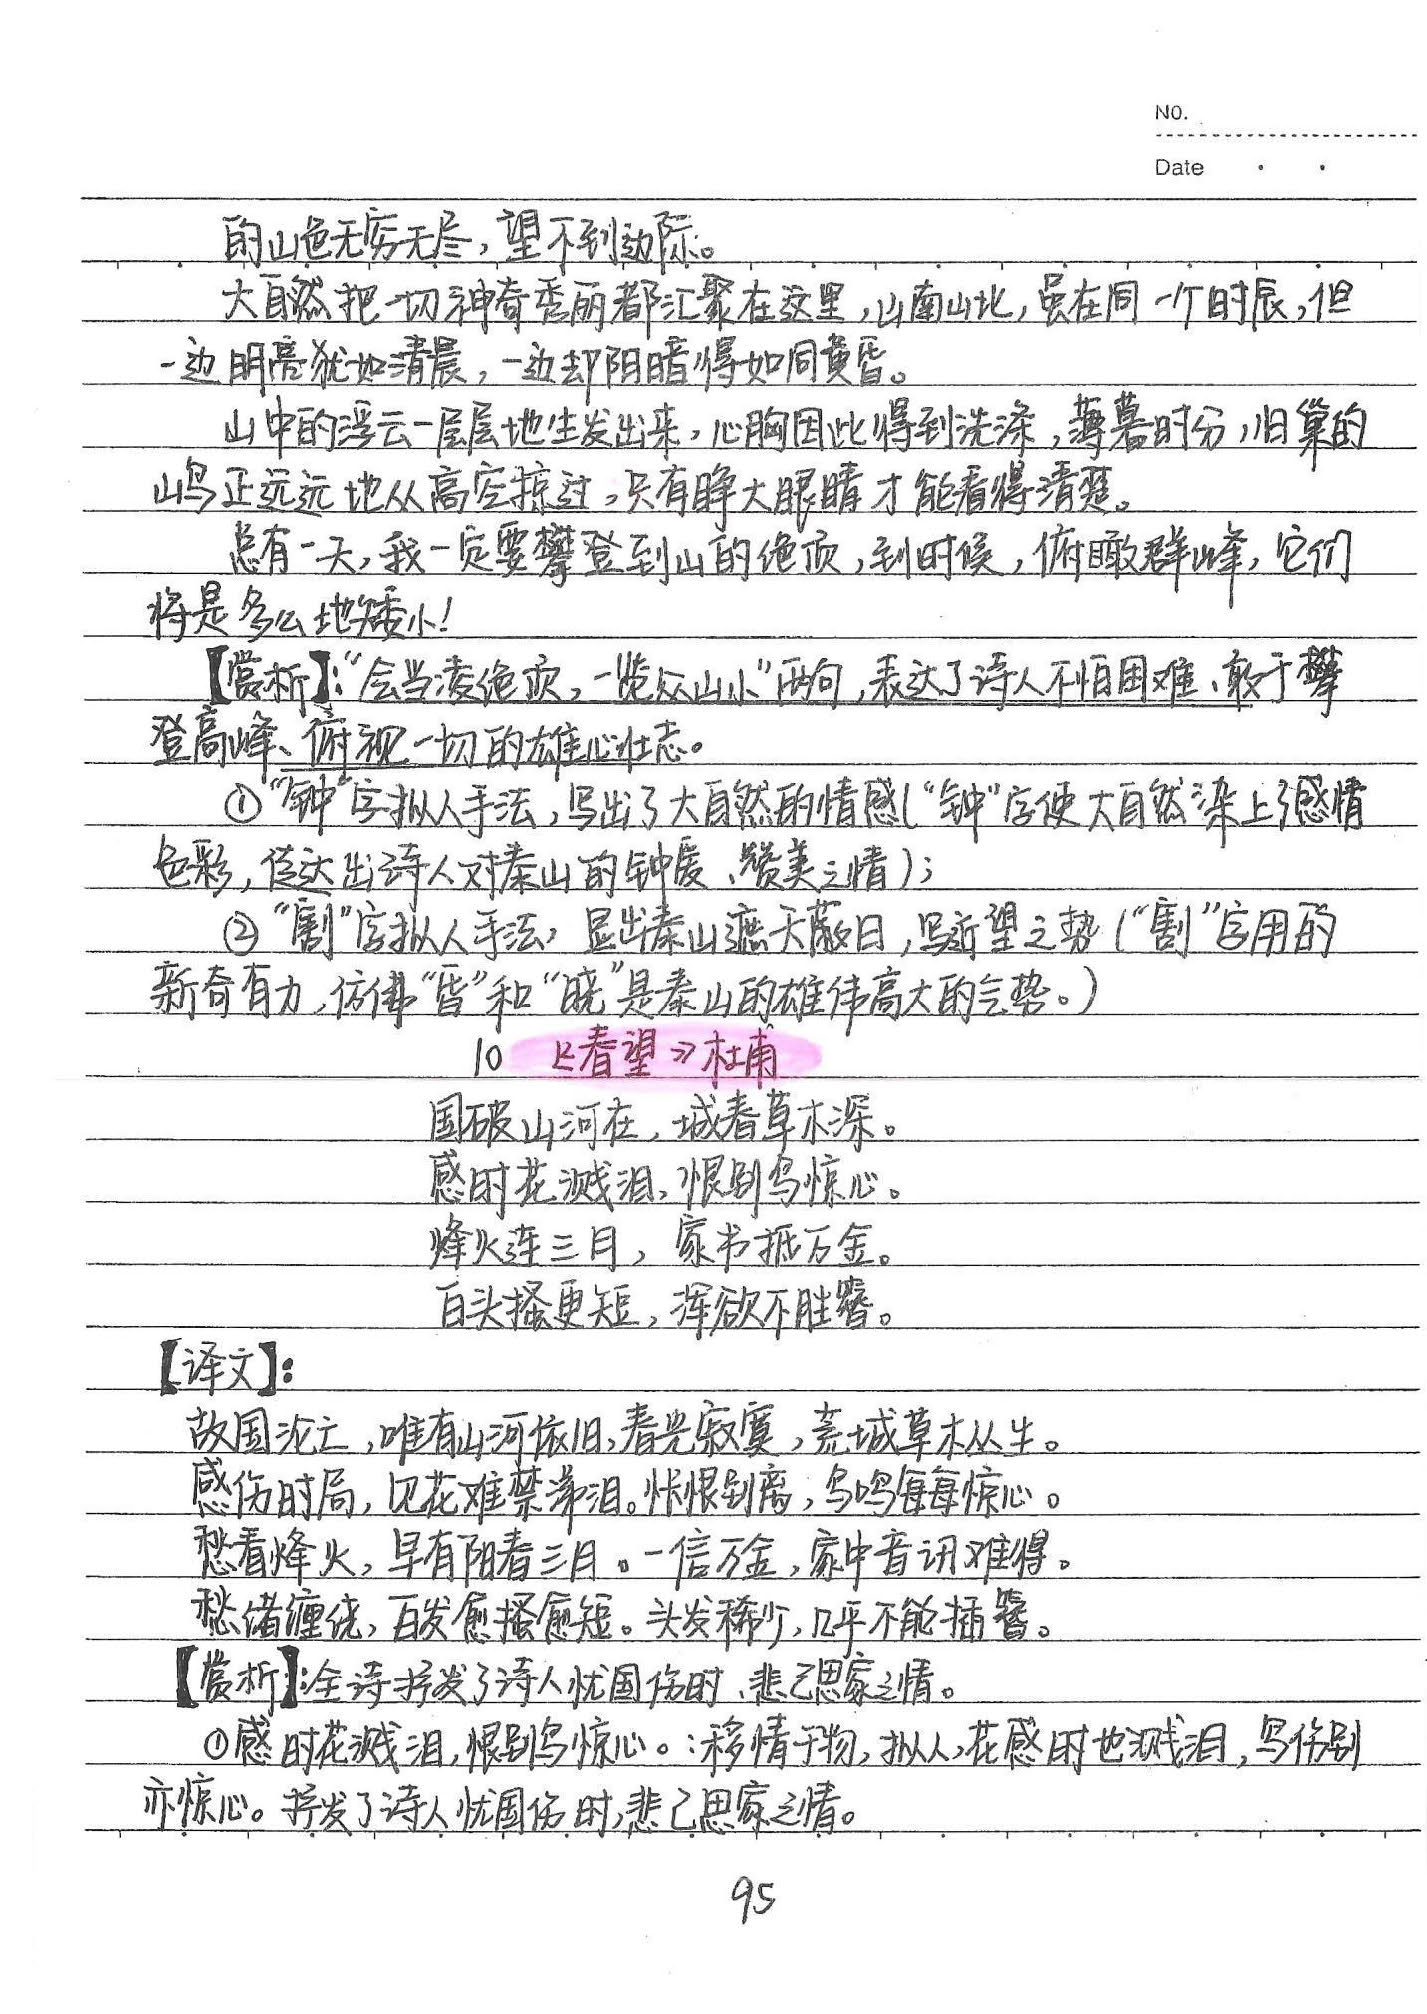 NO.
Date
的山色无穷无尽，望不到边际。
大自然把一切神奇秀丽都汇聚在这里，山南山北，虽在同一个时辰，但
一边明亮犹如清晨，一边却阴暗得如同黄昏。
山中的浮云一层层地生发出来，心胸因此得到洗涤，薄暮时分，归巢的
山鸟正远远地从高空掠过，只有睁大眼睛才能看得清楚。
总有一天，我一定要攀登到山的绝顶，到时候，俯瞰群峰，它们
将是多么地矮小！
【赏析】：“会当凌绝顶，一览众山小”两句，表达了诗人不怕困难、敢于攀
登高峰、俯视一切的雄心壮志。
①“钟”字拟人手法，写出了大自然的情感（“钟”字使大自然染上了感情
色彩，传达出诗人对泰山的钟爱、赞美之情）；
②“割”字拟人手法，显出泰山遮天蔽日，写近望之势（“割”字用的
新奇有力，仿佛“昏”和“晓”是泰山的雄伟高大的气势。）
10 《春望》杜甫
国破山河在，城春草木深。
感时花溅泪，恨别鸟惊心。
烽火连三月，家书抵万金。
白头搔更短，浑欲不胜簪。
【译文】：
故国沦亡，唯有山河依旧，春光寂寞，荒城草木丛生。
感伤时局，见花难禁涕泪。怅恨别离，鸟鸣每每惊心。
愁看烽火，早有阳春三月。一信万金，家中音讯难得。
愁绪缠绕，白发愈搔愈短。头发稀少，几乎不能插簪。
【赏析】：全诗抒发了诗人忧国伤时、悲己思家之情。
①感时花溅泪，恨别鸟惊心。：移情于物，拟人，花感时也溅泪，鸟伤别
亦惊心。抒发了诗人忧国伤时，悲己思家之情。
95